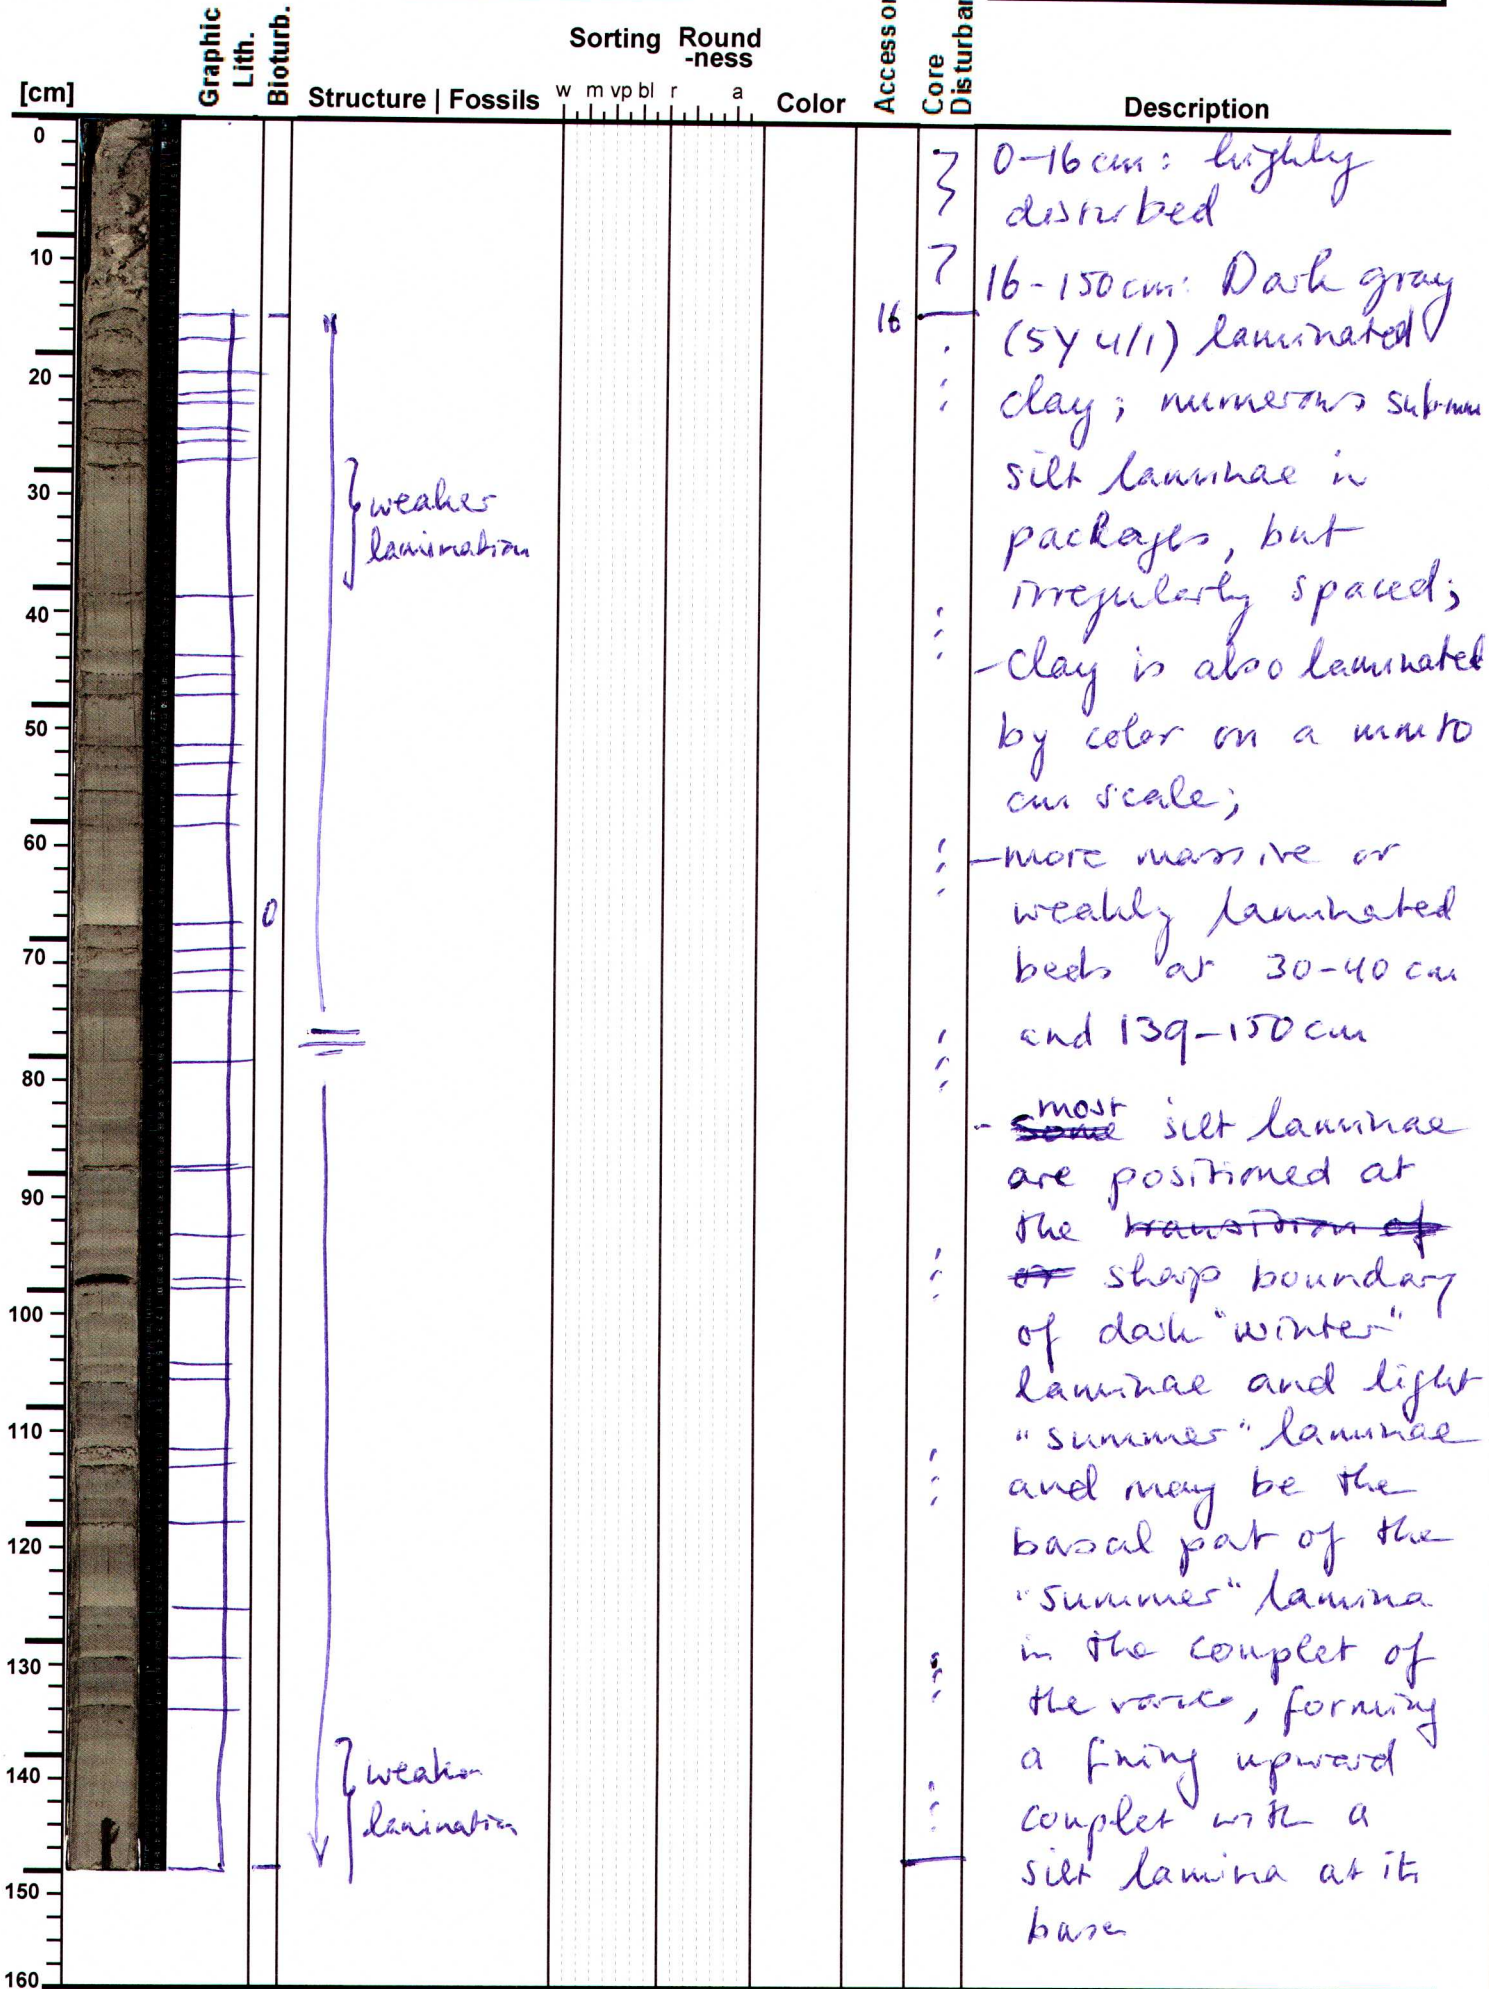 Graphic Lith.
Bioturb.
Accessor
Core Disturban
Sorting Round
-ness
[cm] Structure | Fossils w m vp bl r a Color Description
0
10
20
30
40
50
60
70
80
90
100
110
120
130
140
150
160
weaker
lamination
0
weaker
lamination
16
0-16 cm: highly
disturbed
16-150cm: Dark gray
(5Y 4/1) laminated
clay; numerous sub-mm
silt laminae in
packages, but
irregularly spaced;
-clay is also laminated
by color on a mm to
cm scale;
-more massive or
weakly laminated
beds at 30-40 cm
and 139-150 cm
most
- some silt laminae
are positioned at
the transition of
or sharp boundary
of dark "winter"
laminae and light
"summer" laminae
and may be the
basal part of the
"summer" lamina
in the couplet of
the varve, forming
a fining upward
couplet with a
silt lamina at its
base